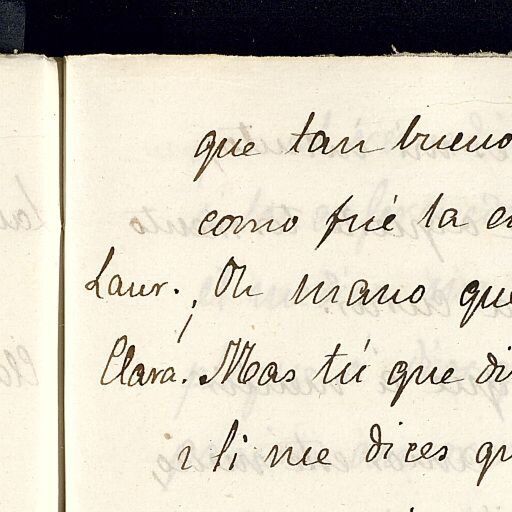 que tan bueno
como fué la
Laur. ¡Oh mano que
Clara. Mas tú que di
me dices qu